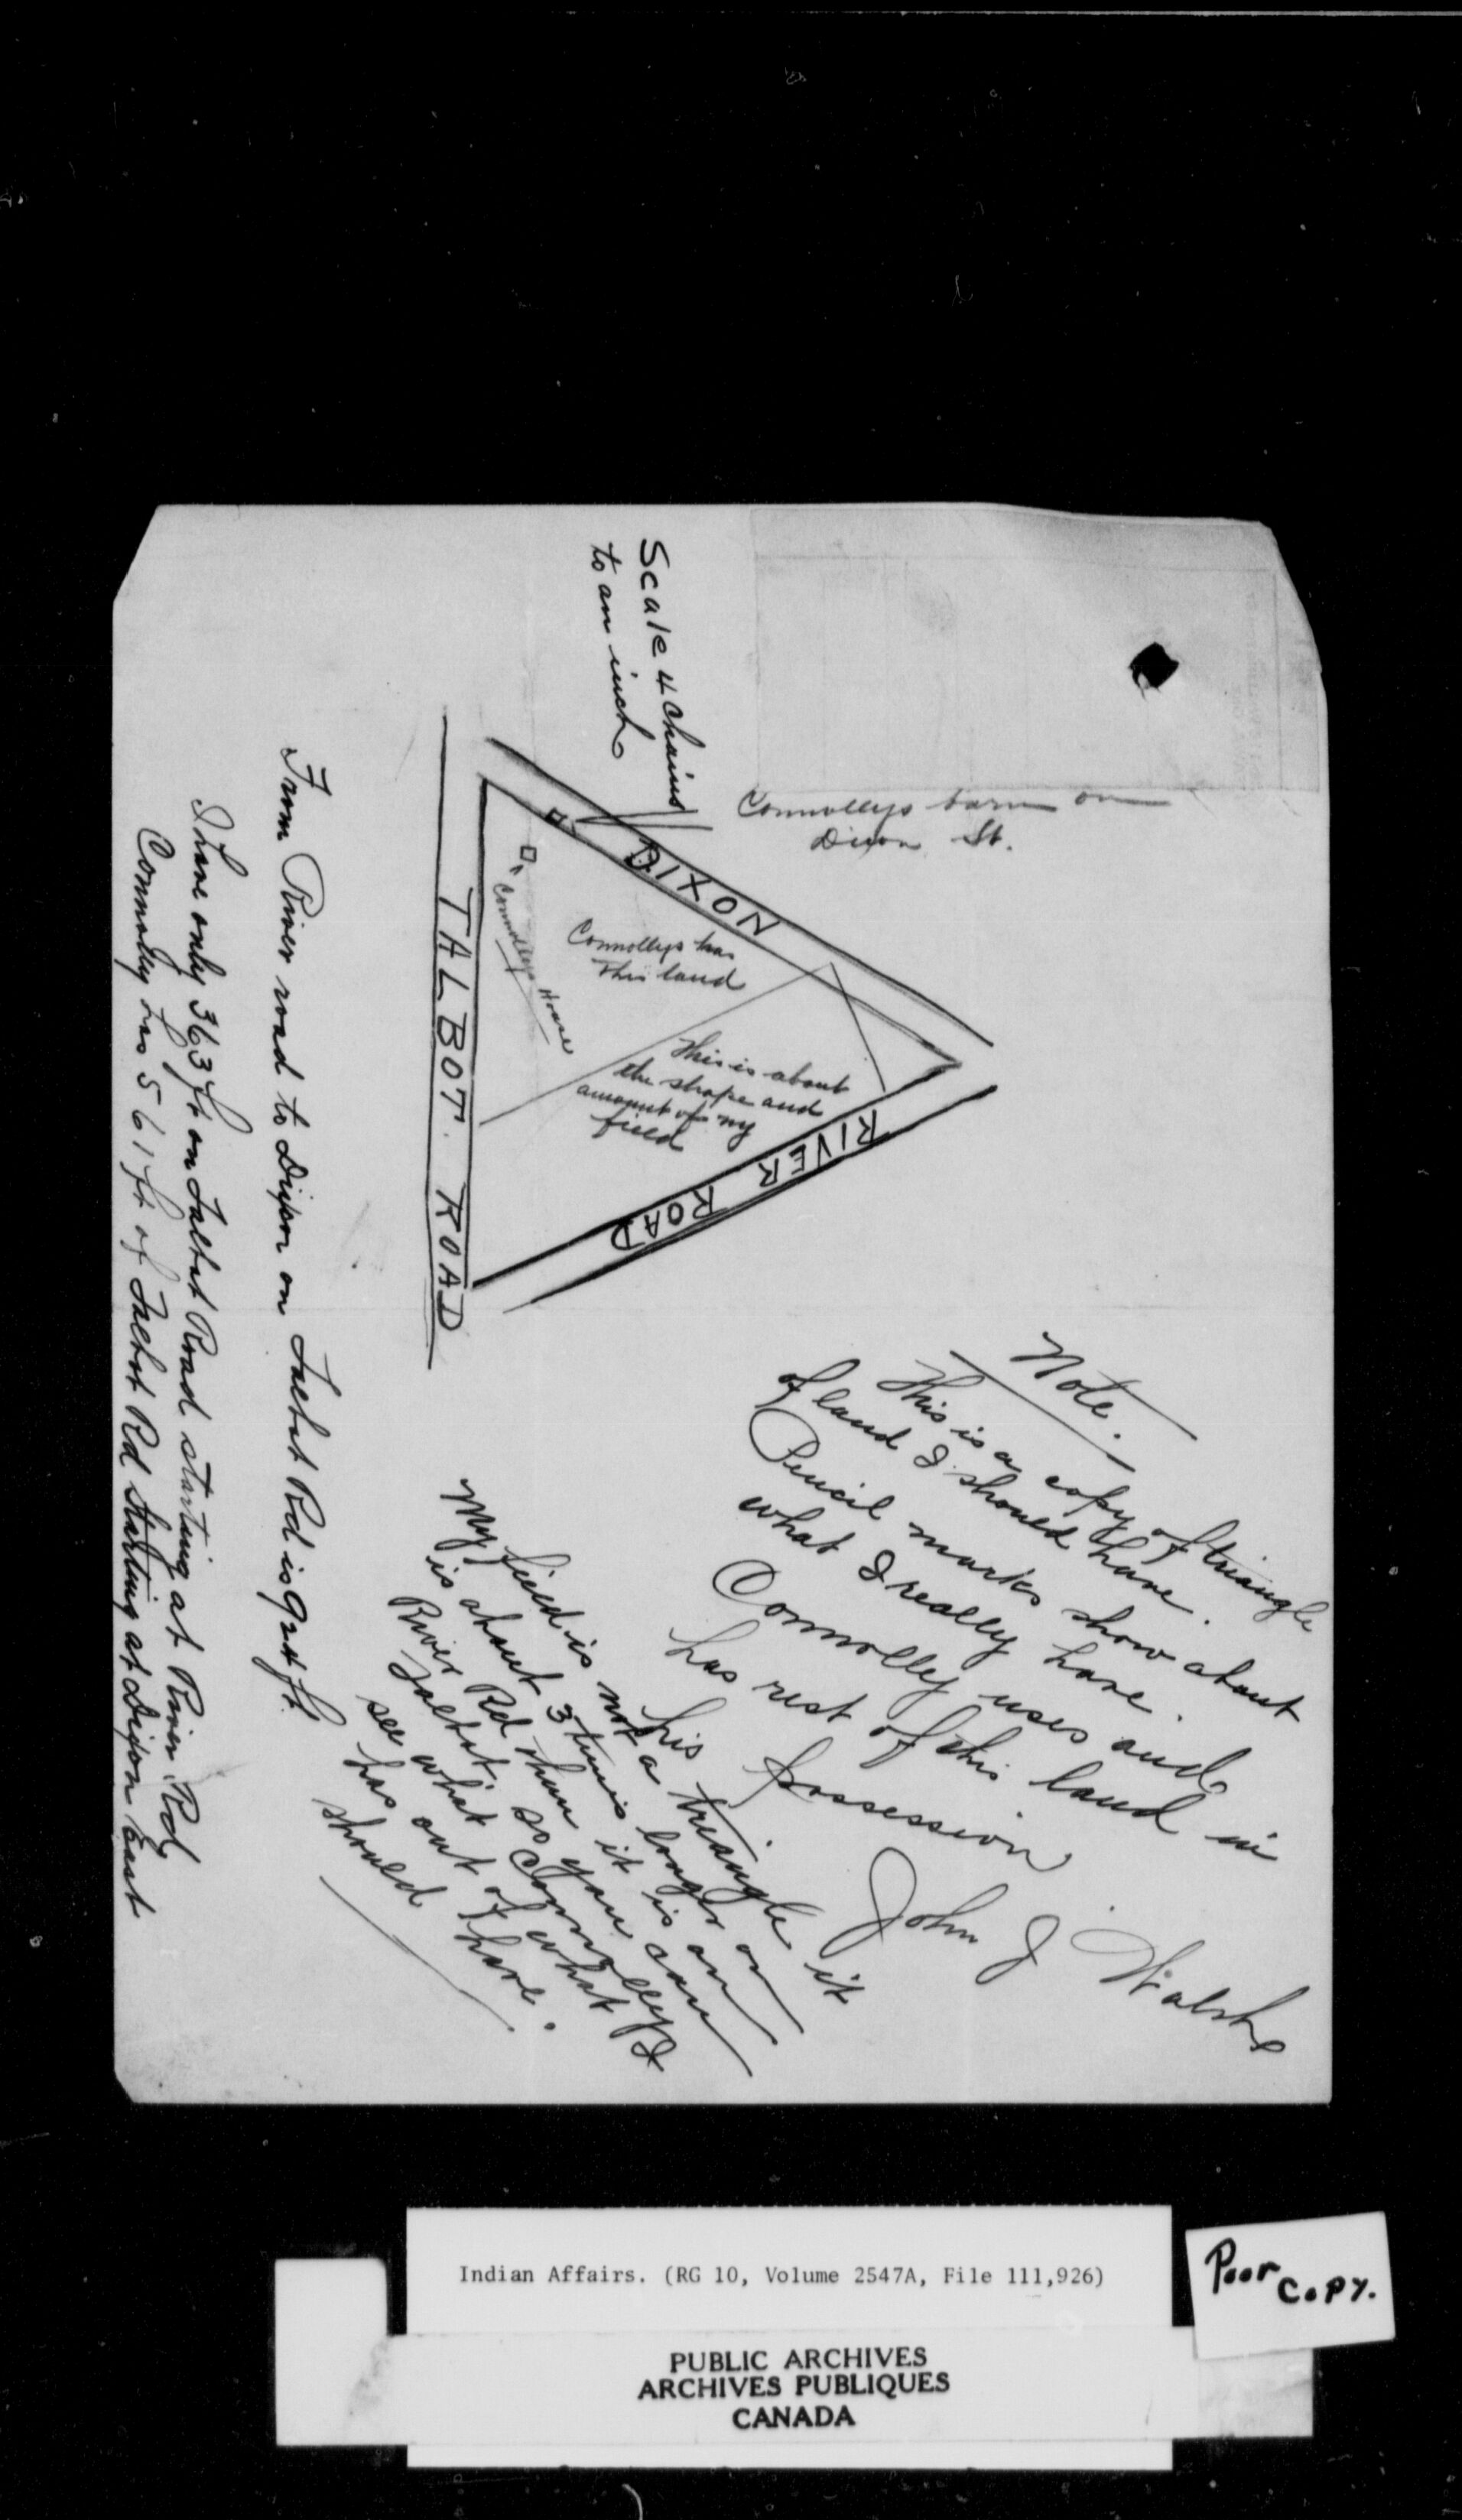 Scale 4 chains
to an inch
Connollys barn on
Dixon St.
DIXON
Connollys has
this land
Connollys House
This is about
the shape and
amount of my
field
RIVER ROAD
TALBOT ROAD
From River road to Dixon on Talbot Rd is 924 ft.
I have only 363 ft on Talbot Road starting at River Rd
Connolly has 561 ft of Talbot Rd Starting at Dixon East
Note.
This is a copy of triangle
of land I should have.
Pencil marks show about
what I really have.
Connolly uses and
has rest of this land in
his possession
John J Walsh
My field is not a triangle it
is about 3 times longer on
River Rd than it is on
Talbot. so you can
see what Connollys
has out of what I
should have.
Indian Affairs. (RG 10, Volume 2547A, File 111,926)
Poor
Copy.
PUBLIC ARCHIVES
ARCHIVES PUBLIQUES
CANADA